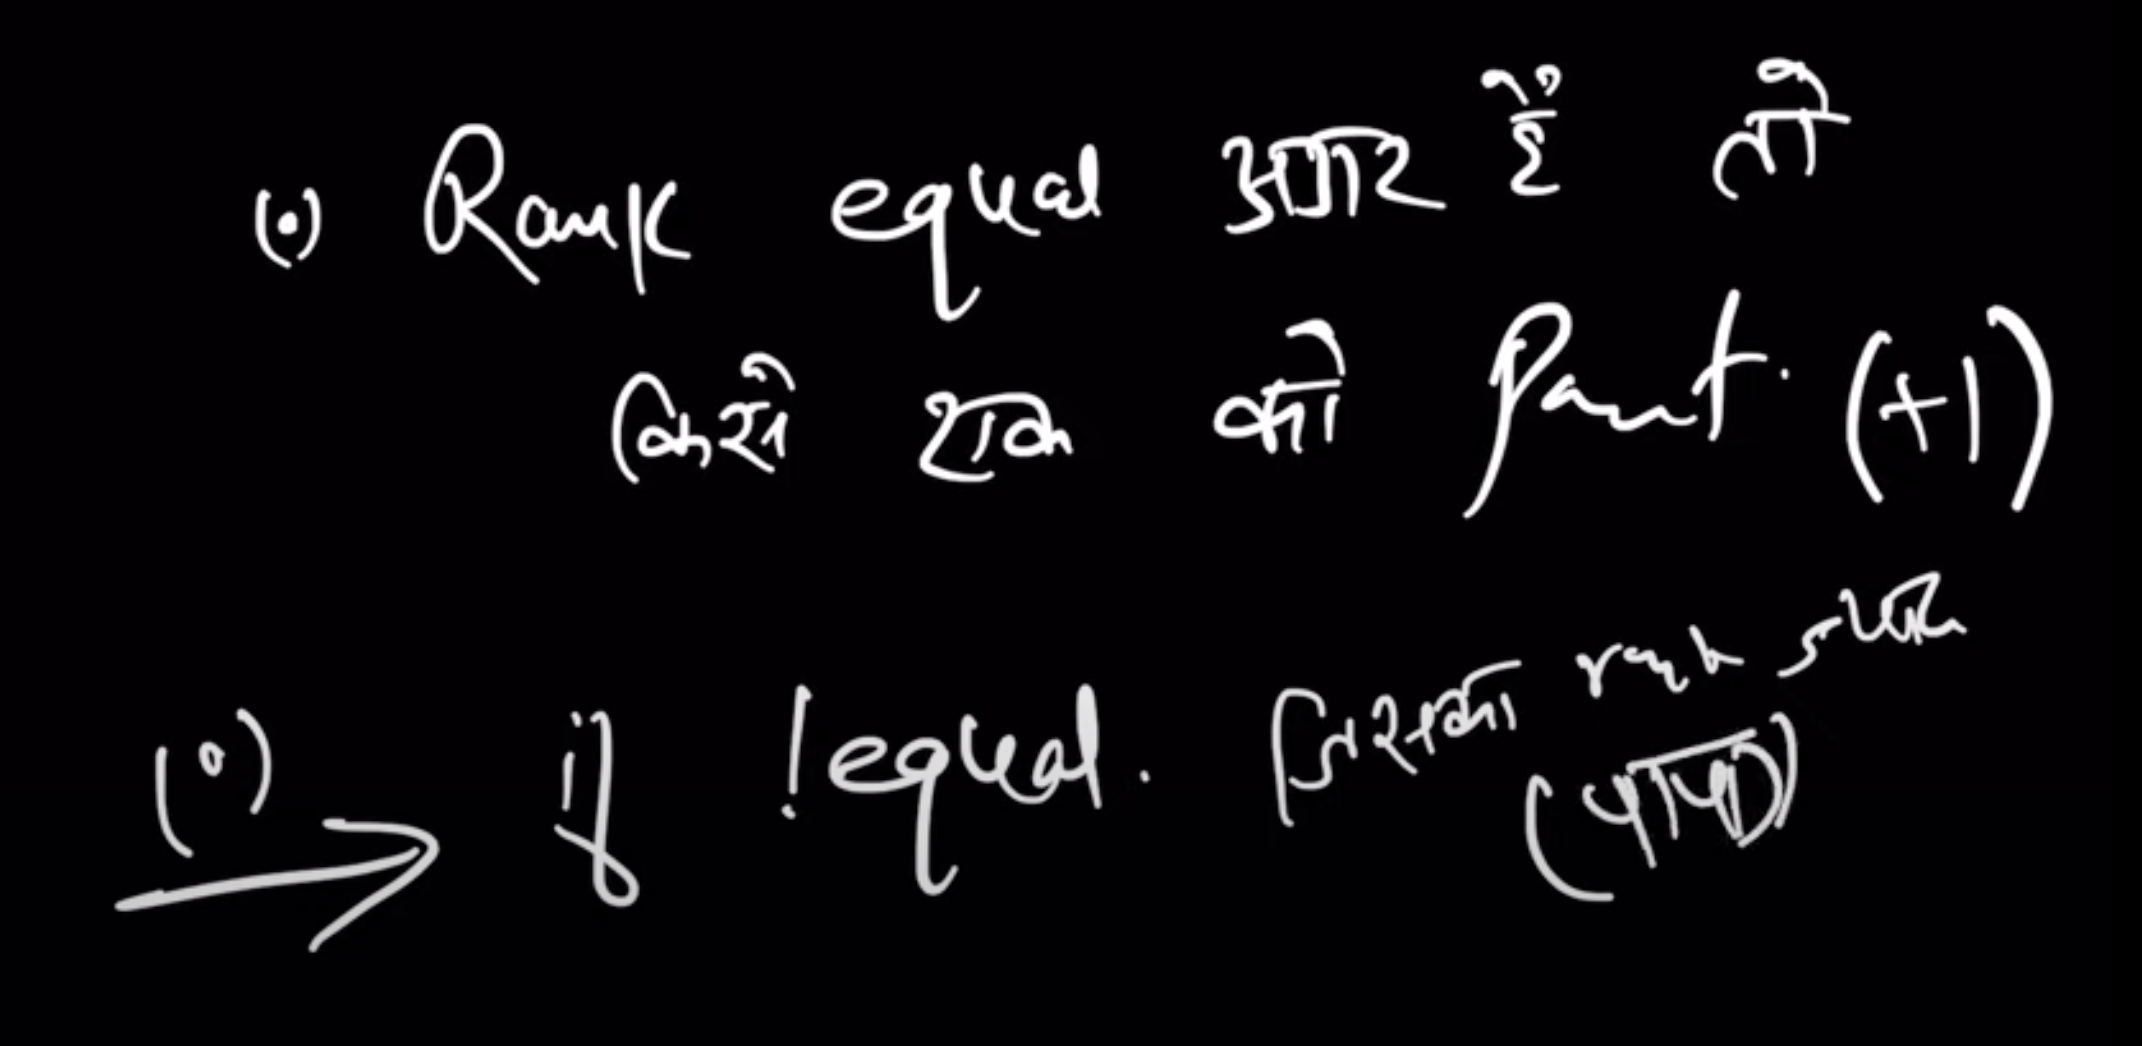 (•) Rank equal अगर हैं तो
किसी एक को Part. (+1)
(०) → if !equal. जिसका rank ज्यादा
(पापा)